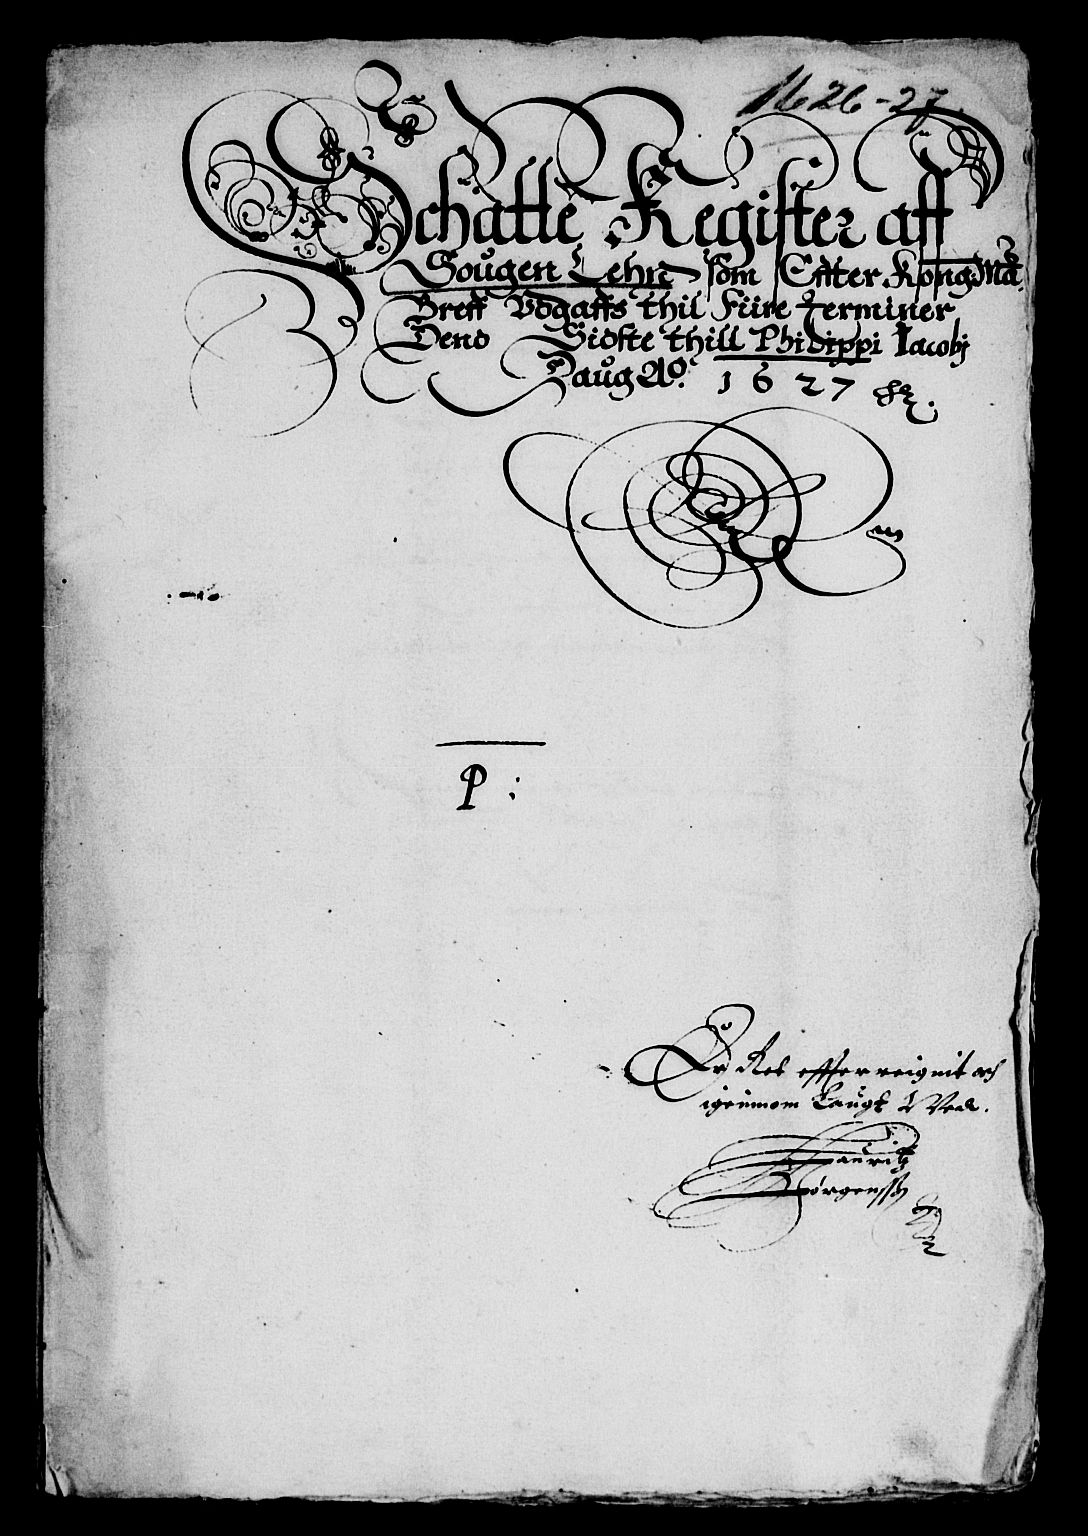 1626-27.
Schatte Register aff
Sougen Lehn som Effter Kong: Ma:
Breff Udgaffs thil Fiire terminer
Dend Sidste thill Philippi Iacobj
Daug Ao. 1627
P:
Er
igennom Laugt
Lauritz
Jørgenssøn